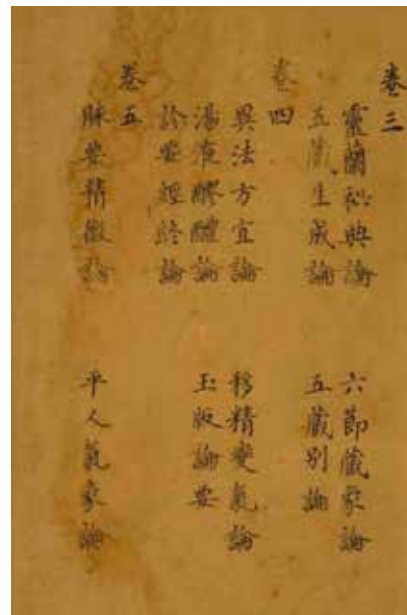 卷三
靈蘭祕典論　六節藏象論
五藏生成論　五藏別論
卷四
異法方宜論　移精變氣論
湯液醪醴論　玉版論要
診要經終論
卷五
脉要精微論　平人氣象論